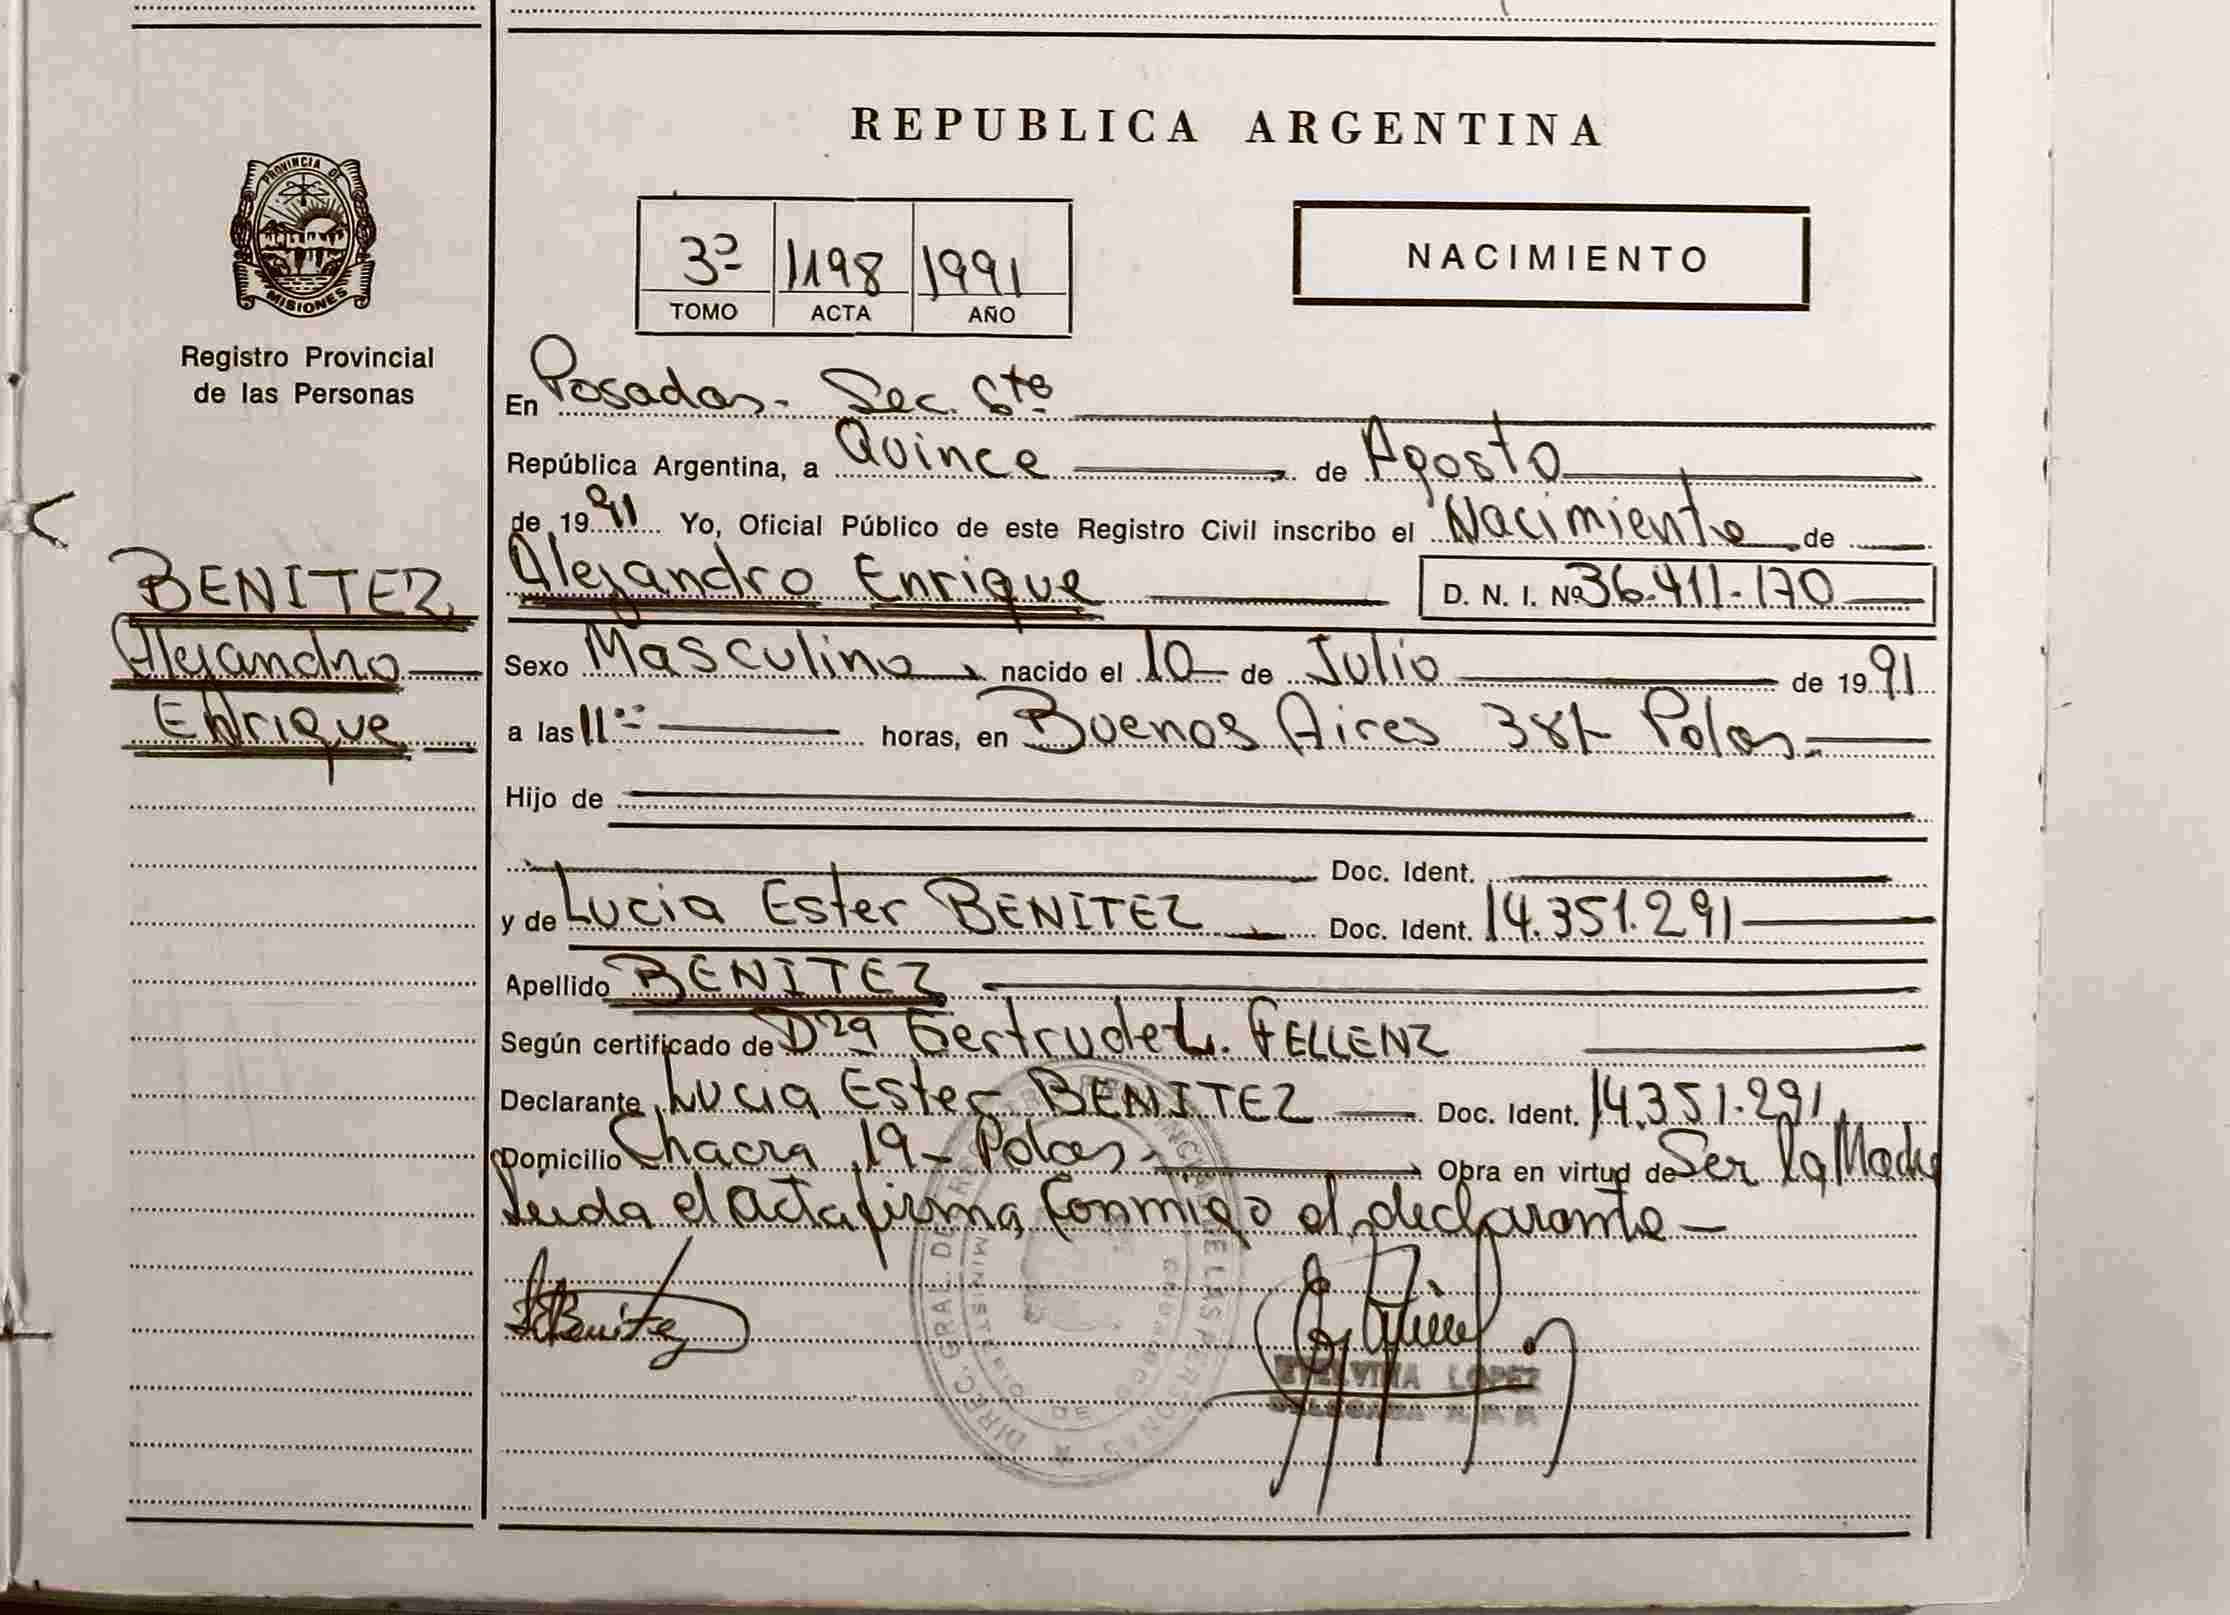 REPUBLICA ARGENTINA
PROVINCIA DE
MISIONES
Registro Provincial
de las Personas
3º 1198 1991
TOMO ACTA AÑO
NACIMIENTO
En Posadas - Sec. 6ta
República Argentina, a Quince de Agosto
de 1991 Yo, Oficial Público de este Registro Civil inscribo el Nacimiento de
BENITEZ
Alejandro
Enrique
Alejandro Enrique D. N. I. Nº 36.411.170
Sexo Masculino nacido el 10 de Julio de 1991
a las 11 horas, en Buenos Aires Pdas.
Hijo de
Doc. Ident.
y de Lucia Ester BENITEZ Doc. Ident. 14.351.291
Apellido BENITEZ
Según certificado de Dra Gertrude L. FELLENZ
Declarante Lucia Ester BENITEZ Doc. Ident. 14.351.291
Domicilio Chacra 19 - Pdas. Obra en virtud de Ser la Madre
Leida el acta firma conmigo el declarante
Benitez
LOPEZ
DIREC. GRAL DE
DE LAS PERSONAS
MINISTERIO
DE